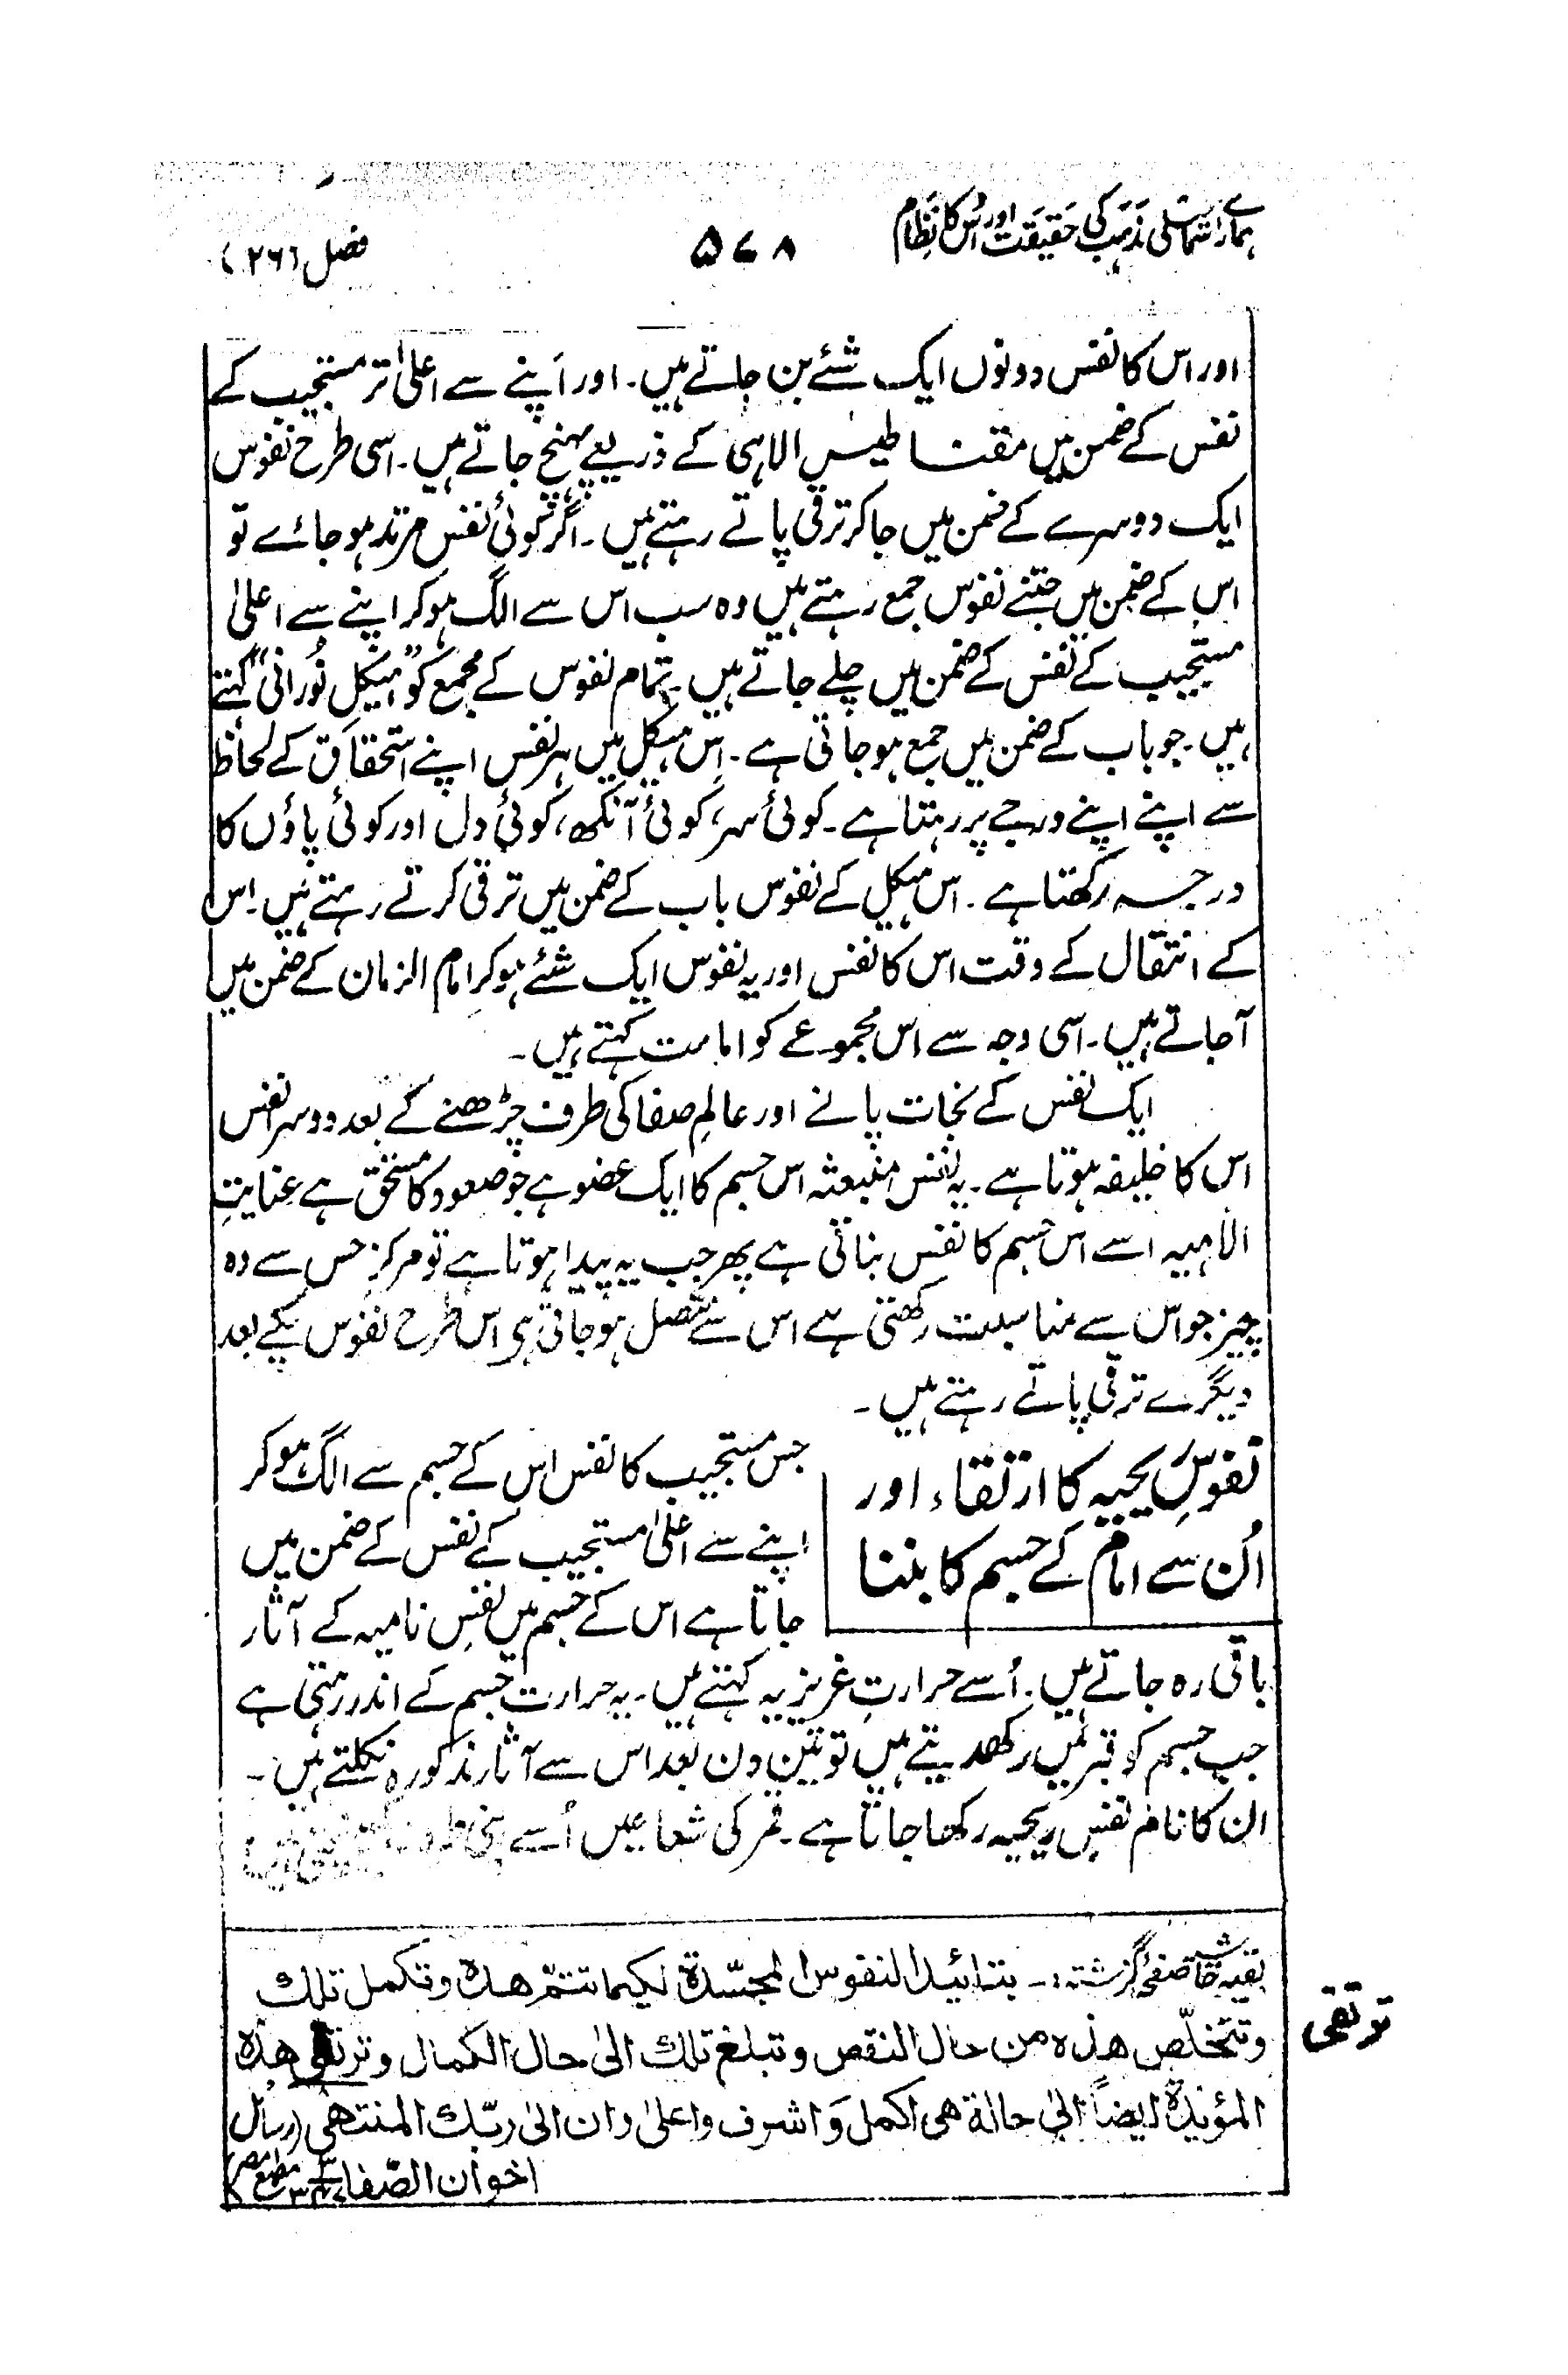 ہمارے اسماعیلی مذہب کی حقیقت اور اُس کا نظام
۵۷۸
فصل (۲۶)
اور اس کا نفس دونوں ایک شئے بن جاتے ہیں۔ اور اپنے سے اعلیٰ تر مستجیب کے
نفس کے ضمن میں مقناطیسِ الاہی کے ذریعے پہنچ جاتے ہیں۔ اسی طرح نفوس
ایک دوسرے کے ضمن میں جا کر ترقی پاتے رہتے ہیں۔ اگر کوئی نفس مرتد ہو جائے تو
اس کے ضمن میں جتنے نفوس جمع رہتے ہیں وہ سب اس سے الگ ہو کر اپنے سے اعلیٰ
مستجیب کے نفس کے ضمن میں چلے جاتے ہیں۔ تمام نفوس کے مجمع کو "ہیکل نُورانی" کہتے
ہیں۔ جو باب کے ضمن میں جمع ہو جاتی ہے۔ اِس ہیکل میں ہر نفس اپنے استحقاق کے لحاظ
سے اپنے اپنے درجے پر رہتا ہے۔ کوئی سر، کوئی آنکھ، کوئی دل اور کوئی پاؤں کا
درجہ رکھتا ہے۔ اس ہیکل کے نفوس باب کے ضمن میں ترقی کرتے رہتے ہیں۔ اِس
کے انتقال کے وقت اس کا نفس اور یہ نفوس ایک شئے ہو کر امام الزمان کے ضمن میں
آجاتے ہیں۔ اسی وجہ سے اس مجموعے کو امامت کہتے ہیں۔
ایک نفس کے نجات پانے اور عالمِ صفا کی طرف چڑھنے کے بعد دوسرا نفس
اس کا خلیفہ ہوتا ہے۔ یہ نفس منبعثہ اس جسم کا ایک عضو ہے جو صعود کا مستحق ہے عنایتِ
الاہیہ اسے اس جسم کا نفس بناتی ہے پھر جب یہ پیدا ہوتا ہے تو مرکز جس سے وہ
چیز جو اس سے مناسبت رکھتی ہے اس سے متصل ہو جاتی ہی اس طرح نفوس یکے بعد
دیگرے ترقی پاتے رہتے ہیں۔
نفوسِ ریحیہ کا ارتقاء اور
اُن سے امام کے جسم کا بننا
جس مستجیب کا نفس اس کے جسم سے الگ ہو کر
اپنے سے اعلیٰ مستجیب کے نفس کے ضمن میں
جاتا ہے اس کے جسم میں نفسِ نامیہ کے آثار
باقی رہ جاتے ہیں۔ اُسے حرارتِ غریزیہ کہتے ہیں۔ یہ حرارت جسم کے اندر رہتی ہے
جب جسم کو قبر میں رکھدیتے ہیں تو تین دن بعد اس سے آثار مذکورہ نکلتے ہیں۔
ان کا نام نفسِ ریحیہ رکھا جاتا ہے۔ قمر کی شعاعیں اُسے
بقیہ حاشیہ صفحۂ گزشتہ:۔ بتائید النفوس المجسّدة لکیما تتمّ ھذہ وتکمل تلك
وتتخلّص ھذہ من حال النقص وتبلغ تلك الیٰ حال الکمال وترتقی ھذہ
المؤیّدة ایضاً الیٰ حالة ھی اکمل وَاشرف واعلیٰ وان الیٰ ربّك المنتھی (رسائل
اخوان الصّفاء مطبع مصر)
ترتقی